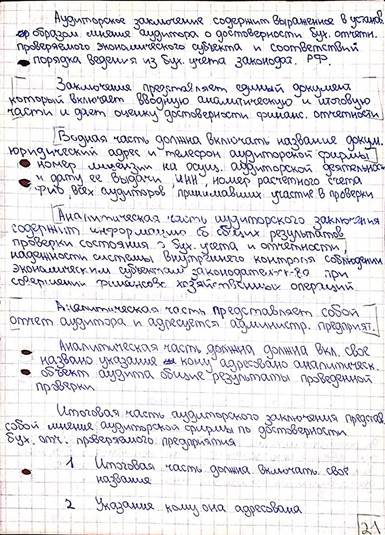 Аудиторское заключение содержит выраженное в установ.
образом мнение аудитора о достоверности бух. отчетн.
проверяемого экономического субъекта и соответствий
порядка ведения из бух. учета законодат. РФ.
Заключение представляет единый документ
который включает вводную аналитическую и итоговую
части и дает оценку достоверности финанс. отчетности
Водная часть должна включать название докум.
юридический адрес и телефон аудиторской фирмы
номер лицензии на осущ. аудиторской деятельнос
и дату ее выдачи, ИНН, номер расчетного счета
ФИО всех аудиторов, принимавших участие в проверки
Аналитическая часть аудиторского заключения
содержит информацию об общих результатов
проверки состояния бух. учета и отчетности,
надежности системы внутреннего контроля соблюдении
экономическим субъектом законодател-г-ва при
совершении финансово хозяйственных операций
Аналитическая часть представляет собой
отчет аудитора и адресуется администр. предприят.
Аналитическая часть должна должна вкл. свое
названо указание кому адресовано аналитическ.
объект аудита общие результаты проведенной
проверки
Итоговая часть аудиторского заключения представ
собой мнение аудиторской фирмы по достоверности
бух. отч. проверяемого предприятия
1 Итоговая часть должна включать свое
название
2 Указание кому она адресована
21